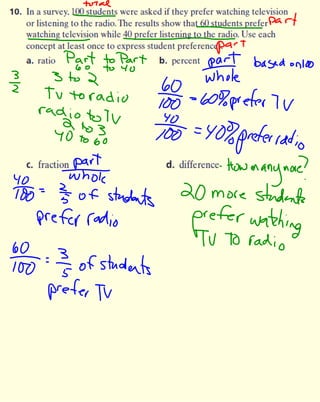 total
10. In a survey, 100 students were asked if they prefer watching television
or listening to the radio. The results show that 60 students prefer part
watching television while 40 prefer listening to the radio. Use each
concept at least once to express student preference. part
a. ratio Part to Part
60 to 40
3 to 2
3/2
TV to radio
radio to TV
2 to 3
40 to 60
b. percent part/whole based on 100
60/100 = 60% prefer TV
40/100 = 40% prefer radio
c. fraction part/whole
40/100 = 2/5 of students
prefer radio
60/100 = 3/5 of students
prefer TV
d. difference- How many more?
20 more students
prefer watching
TV TO radio